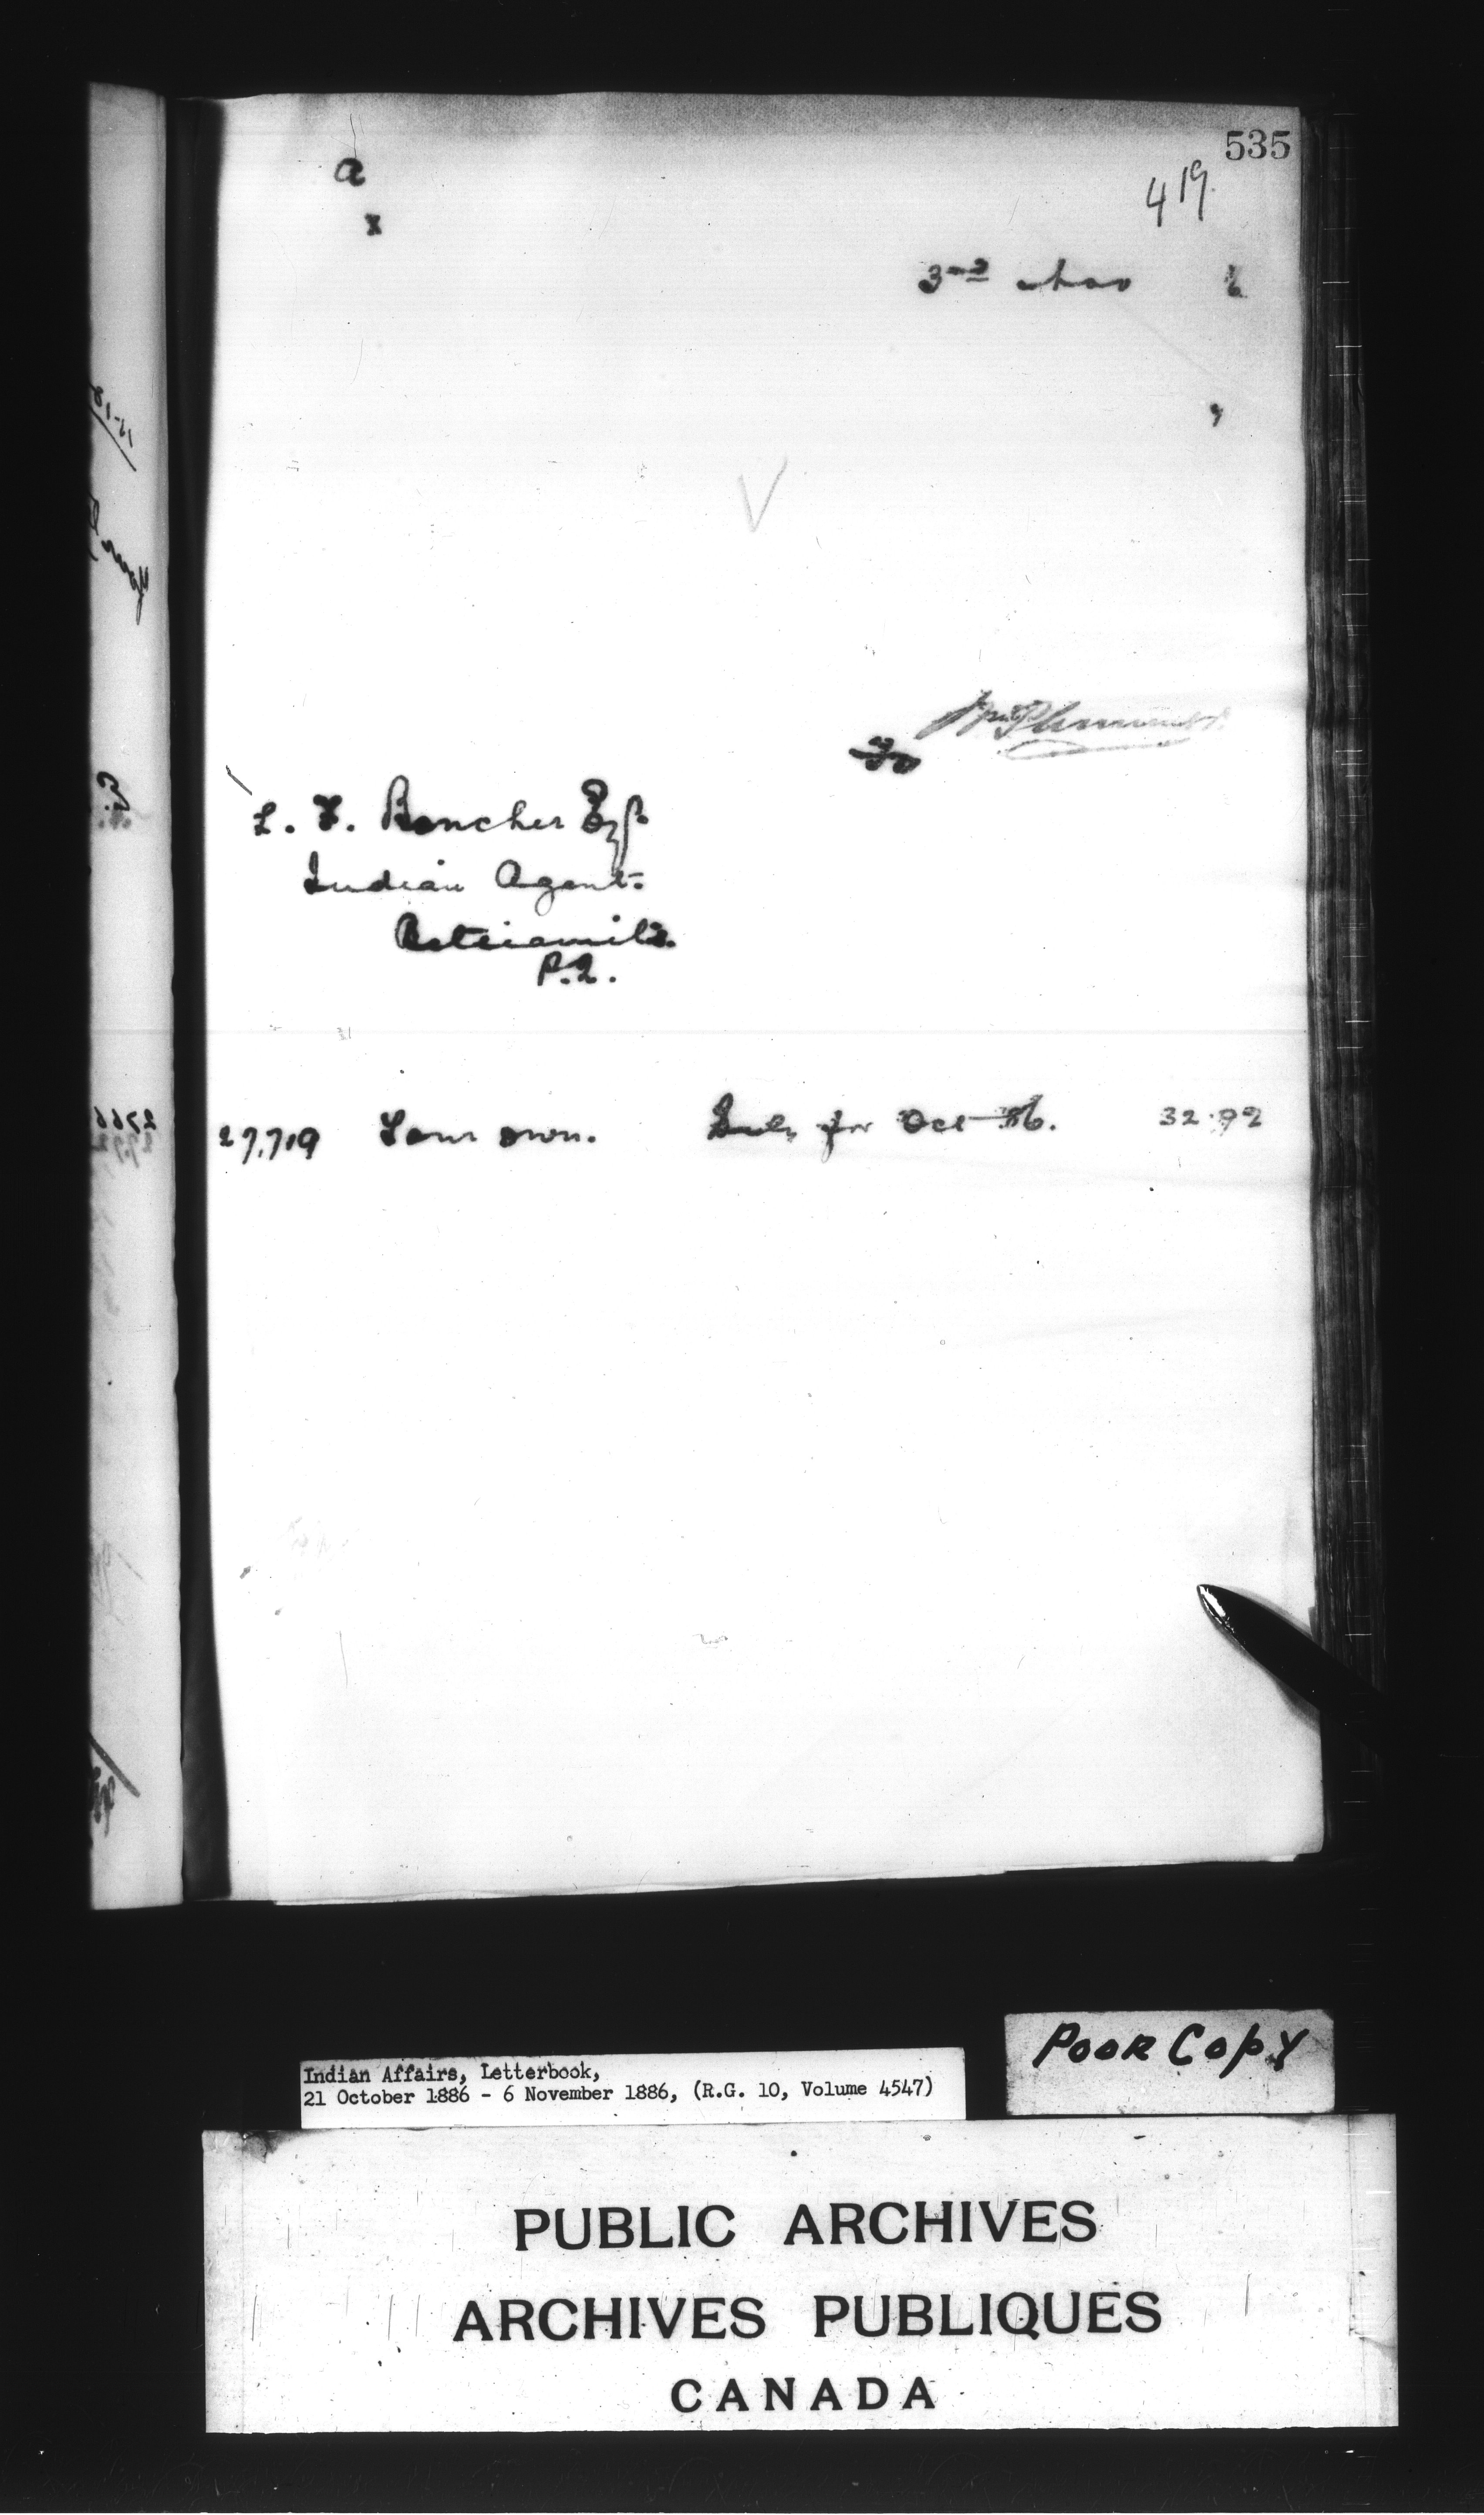 535
a
419
x
3rd Nov 6
L. F. Boucher Esq.
Indian Agent
Betsiamits.
P.Q.
27,719 Your own. Saly for Oct 86. 32.92
Poor Copy
Indian Affairs, Letterbook,
21 October 1886 - 6 November 1886, (R.G. 10, Volume 4547)
PUBLIC ARCHIVES
ARCHIVES PUBLIQUES
CANADA